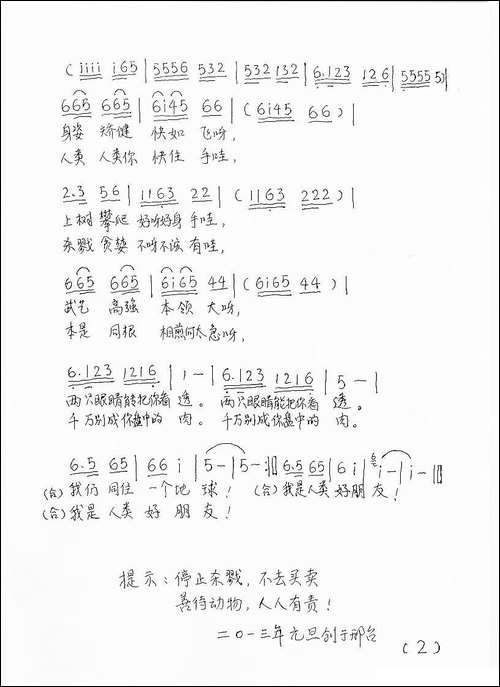 ( iiii i65 | 5555 6 532 | 532 132 | 6.123 126 | 5555 5)|
665 665 | 6i45 66 | ( 6i45 66 ) |
身姿 矫健 快如 飞呀,
人类 人类你 快住 手哇,
2.3 56 | 1163 22 | ( 1163 222 ) |
上树 攀爬 好呀好身 手哇,
杀戮 贪婪 不呀不该 有哇,
665 665 | 6i65 44 | ( 6i65 44 ) |
武艺 高强 本领 大呀,
本是 同根 相煎何太急呀,
6.123 1216 | 1 - | 6.123 1216 | 5 - |
两只眼睛能把你看 透。 两只眼睛能把你看 透。
千万别成你盘中的 肉。 千万别成你盘中的 肉。
6.5 65 | 66 i | 5 - | 5 - :|| 6.5 65 | 6 i | i - | i - ||
(合) 我们 同住 一个地 球! (合) 我是人类 好朋 友!
(合) 我是 人类 好 朋 友!
提示:停止杀戮,不去买卖
善待动物,人人有责!
二〇一三年元旦创于邢台
(2)